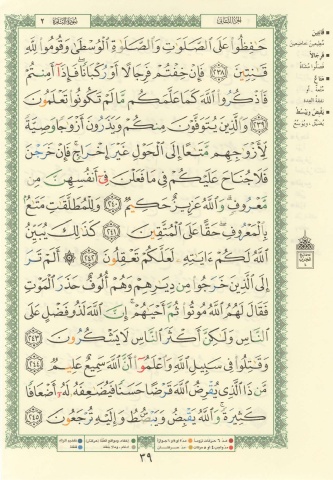 حَٰفِظُوا۟ عَلَى ٱلصَّلَوَٰتِ وَٱلصَّلَوٰةِ ٱلْوُسْطَىٰ وَقُومُوا۟ لِلَّهِ
قَٰنِتِينَ ٢٣٨ فَإِنْ خِفْتُمْ فَرِجَالًا أَوْ رُكْبَانًا فَإِذَآ أَمِنتُمْ
فَٱذْكُرُوا۟ ٱللَّهَ كَمَا عَلَّمَكُم مَّا لَمْ تَكُونُوا۟ تَعْلَمُونَ
٢٣٩ وَٱلَّذِينَ يُتَوَفَّوْنَ مِنكُمْ وَيَذَرُونَ أَزْوَٰجًا وَصِيَّةً
لِّأَزْوَٰجِهِم مَّتَٰعًا إِلَى ٱلْحَوْلِ غَيْرَ إِخْرَاجٍ فَإِنْ خَرَجْنَ
فَلَا جُنَاحَ عَلَيْكُمْ فِى مَا فَعَلْنَ فِىٓ أَنفُسِهِنَّ مِن
مَّعْرُوفٍ وَٱللَّهُ عَزِيزٌ حَكِيمٌ ٢٤٠ وَلِلْمُطَلَّقَٰتِ مَتَٰعٌۢ
بِٱلْمَعْرُوفِ حَقًّا عَلَى ٱلْمُتَّقِينَ ٢٤١ كَذَٰلِكَ يُبَيِّنُ
ٱللَّهُ لَكُمْ ءَايَٰتِهِۦ لَعَلَّكُمْ تَعْقِلُونَ ٢٤٢ ۞ أَلَمْ تَرَ
إِلَى ٱلَّذِينَ خَرَجُوا۟ مِن دِيَٰرِهِمْ وَهُمْ أُلُوفٌ حَذَرَ ٱلْمَوْتِ
فَقَالَ لَهُمُ ٱللَّهُ مُوتُوا۟ ثُمَّ أَحْيَٰهُمْ إِنَّ ٱللَّهَ لَذُو فَضْلٍ عَلَى
ٱلنَّاسِ وَلَٰكِنَّ أَكْثَرَ ٱلنَّاسِ لَا يَشْكُرُونَ ٢٤٣
وَقَٰتِلُوا۟ فِى سَبِيلِ ٱللَّهِ وَٱعْلَمُوٓا۟ أَنَّ ٱللَّهَ سَمِيعٌ عَلِيمٌ ٢٤٤
مَّن ذَا ٱلَّذِى يُقْرِضُ ٱللَّهَ قَرْضًا حَسَنًا فَيُضَٰعِفَهُۥ لَهُۥٓ أَضْعَافًا
كَثِيرَةً وَٱللَّهُ يَقْبِضُ وَيَبْصُۜطُ وَإِلَيْهِ تُرْجَعُونَ ٢٤٥
٣٩